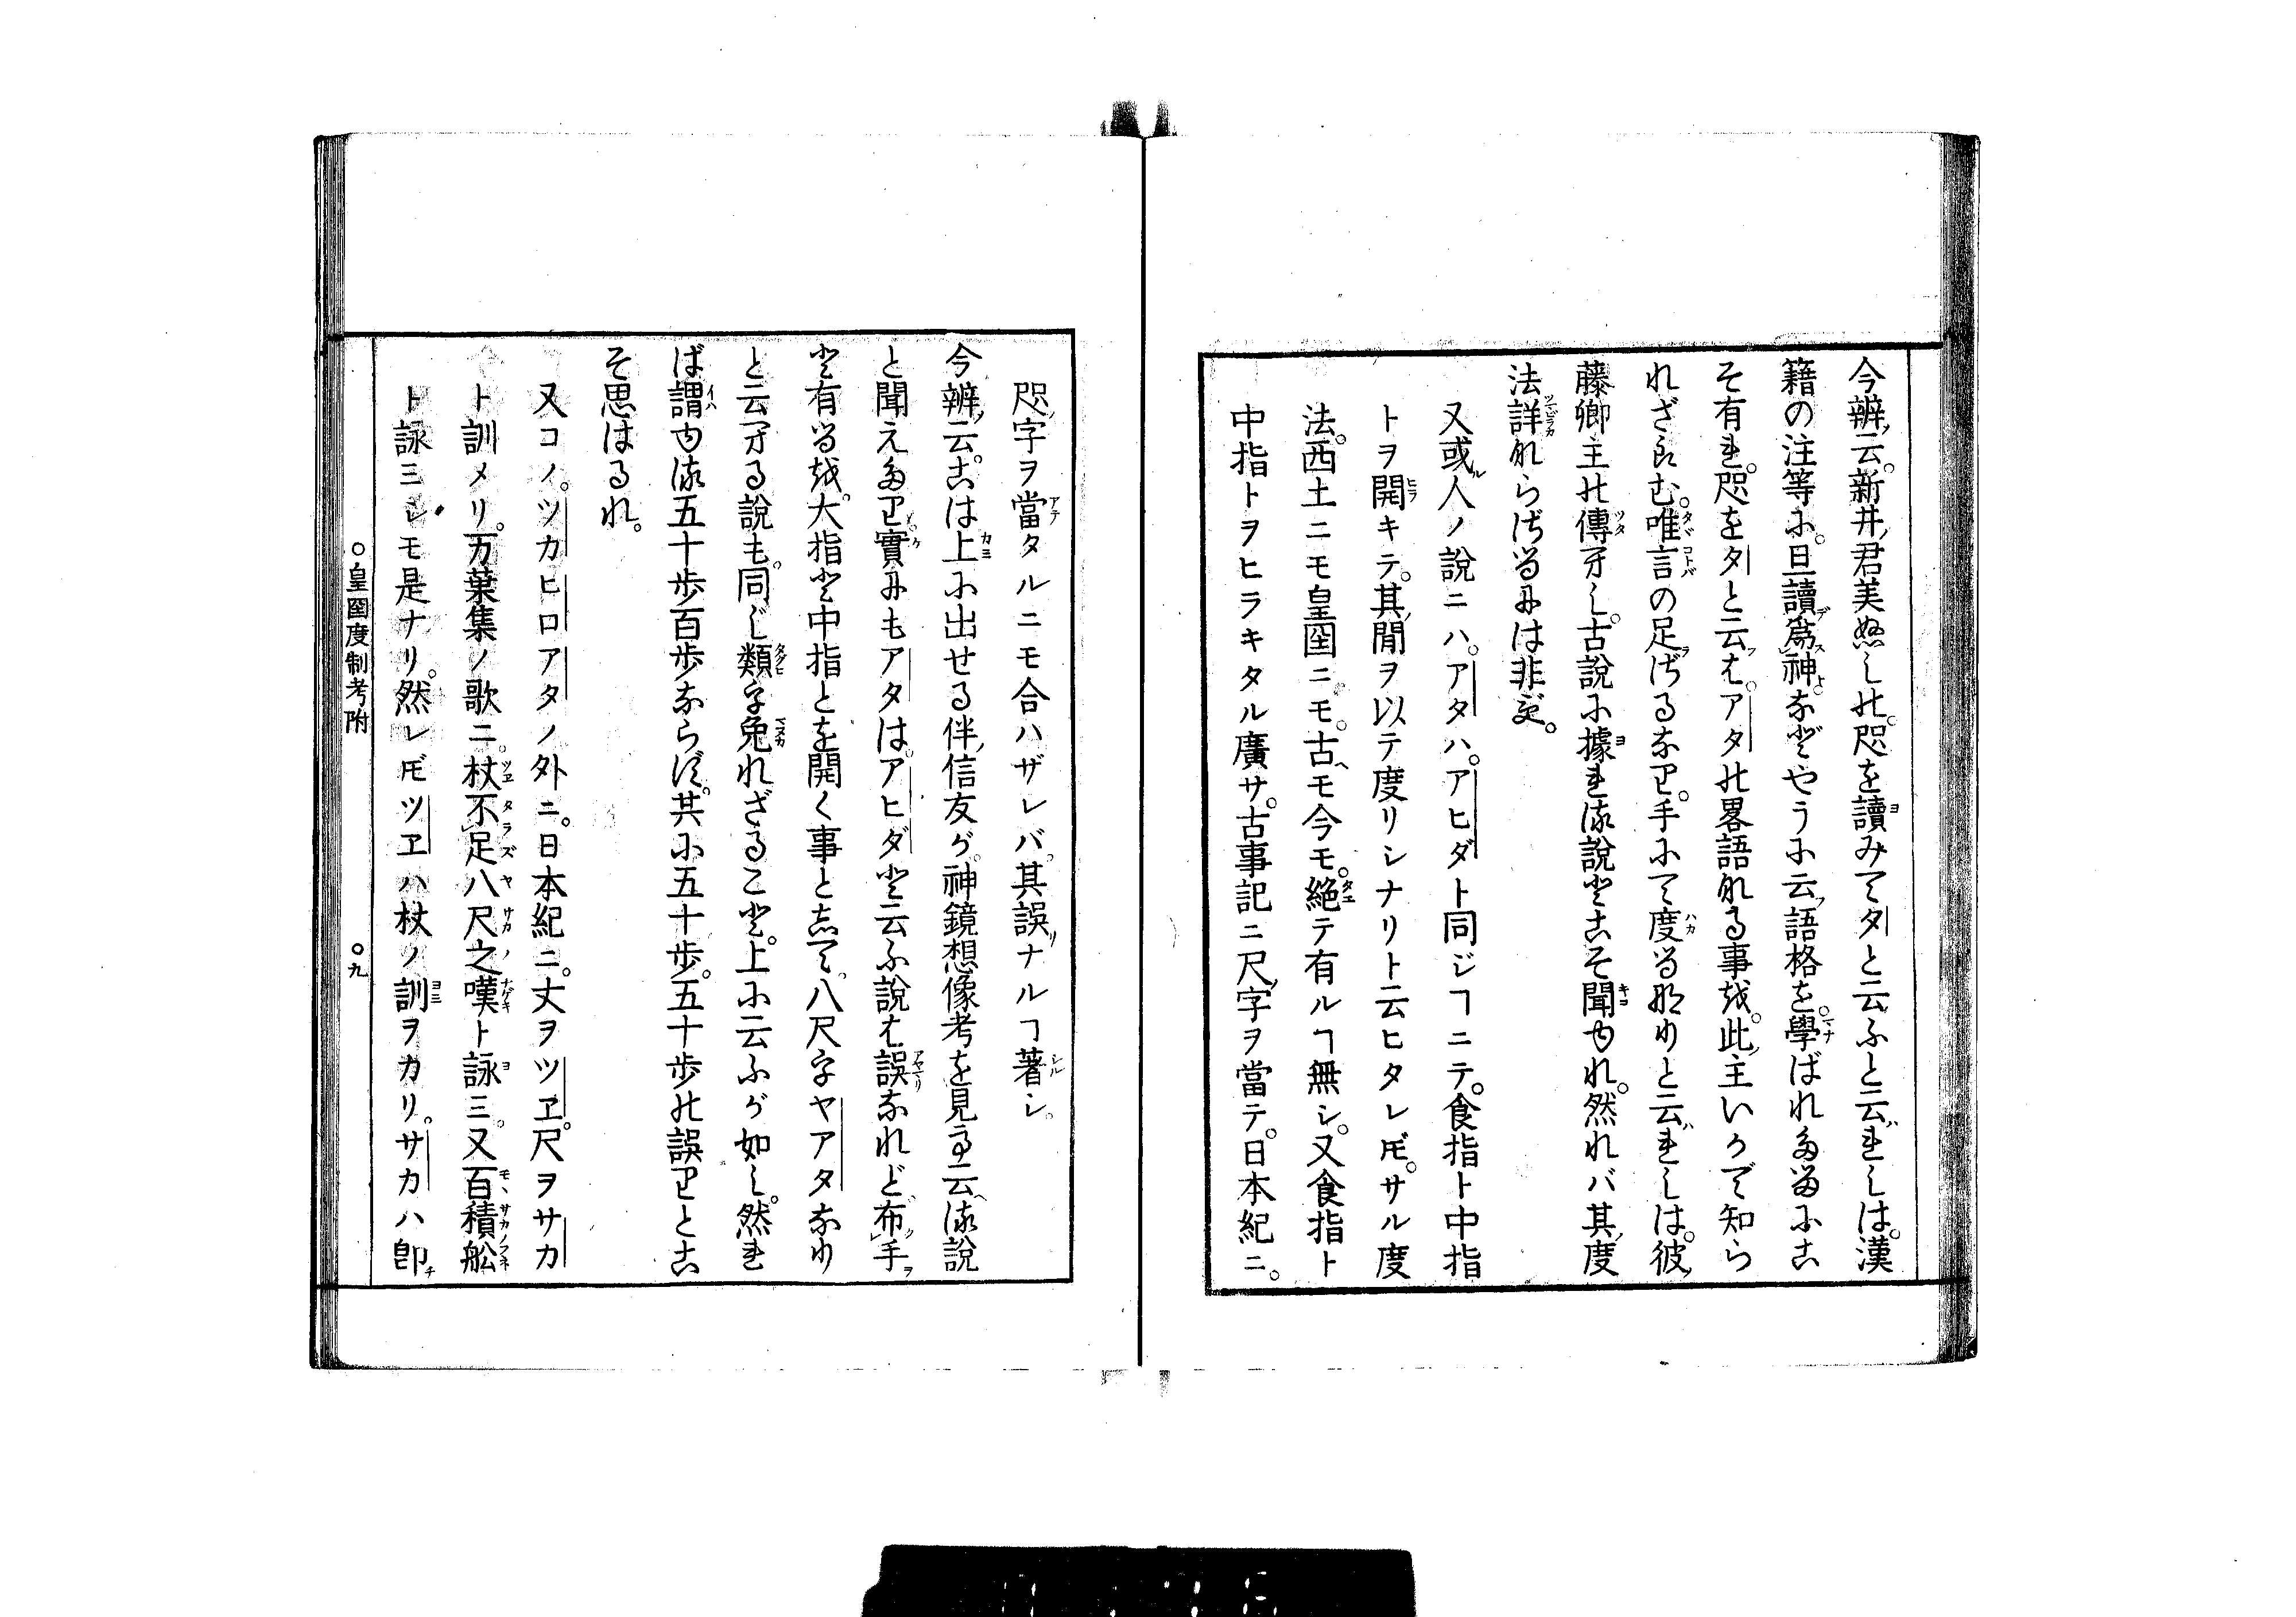 今辨云。新井君美ぬしの。咫を讀みてタと云ふと云れしは。漢
籍の注等に。旦讀爲神などやうに云語格を。學ばれたるにこ
そ有れ。咫をタと云は。アタの畧語なる事を。此主いかで知ら
れざらむ。唯言の足はざるなり。手にて度るなりと云れしは。彼
藤卿主の傳へし。古説に據れる説とこそ聞ゆれ。然れバ其度
法詳ならざるには非ず。
又或人ノ説ニハ。アタハ。アヒダト同ジヿニテ。食指ト中指
トヲ開キテ。其間ヲ以テ度リシナリト云ヒタレ𪜈。サル度
法。西土ニモ皇国ニモ。古ヘモ今モ。絶テ有ルヿ無シ。又食指ト
中指トヲヒラキタル廣サ。古事記ニ尺字ヲ當テ。日本紀ニ。
咫字ヲ當タルニモ合ハザレバ。其誤ナルヿ著シ。
今辨云。こは上に出せる伴信友が。神鏡想像考を見て云へる説
と聞えたり。實にもアタは。アヒダと云ふ説は誤なれど。布手
と有るを。大指と中指とを開く事として。八尺字ヤアタなり
と云へる説も。同じ類を免れざること。上に云ふが如し。然れ
ば謂ゆる五十歩百歩ならず。共に五十歩。五十歩の誤りとこ
そ思はるれ。
又コノ。ツカヒロアタノ外ニ。日本紀ニ。丈ヲツヱ。尺ヲサカ
ト訓メリ。万葉集ノ歌ニ。杖不足八尺之嘆ト詠ミ。又百積舩
ト詠ミシモ是ナリ。然レ𪜈ツヱハ杖ノ訓ヲカリ。サカハ卽
○皇国度制考附 ○九